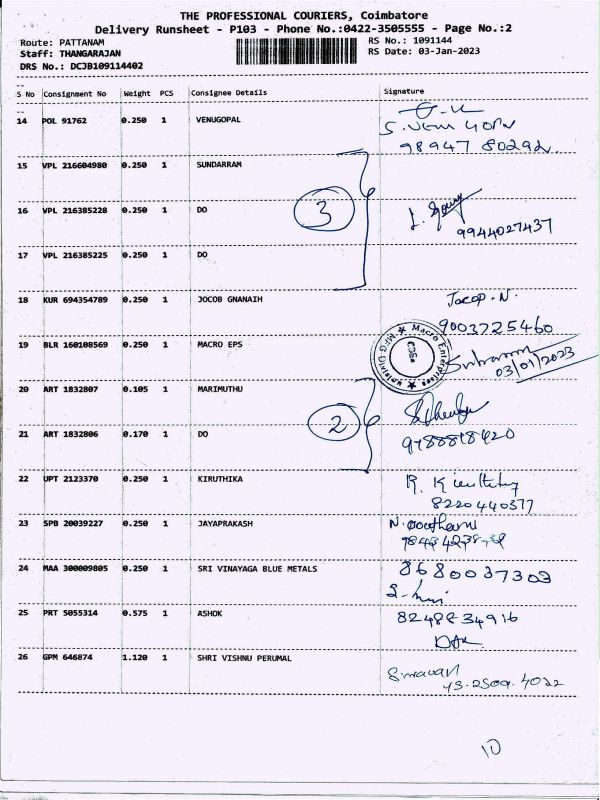 THE PROFESSIONAL COURIERS, Coimbatore
Delivery Runsheet - P103 - Phone No.:0422-3505555 - Page No.:2
Route: PATTANAM RS No.: 1091144
Staff: THANGARAJAN RS Date: 03-Jan-2023
DRS No.: DCJB109114402
S No Consignment No Weight PCS Consignee Details Signature
14 POL 91762 0.250 1 VENUGOPAL
98947 80292
15 VPL 216604980 0.250 1 SUNDARRAM
16 VPL 216385228 0.250 1 DO
3
9944027437
17 VPL 216385225 0.250 1 DO
18 KUR 694354789 0.250 1 JOCOB GNANAIH
9003725460
19 BLR 160108569 0.250 1 MACRO EPS
Macro Enterprises
MFG Division
03/01/2023
20 ART 1832807 0.105 1 MARIMUTHU
2
21 ART 1832806 0.170 1 DO
22 UPT 2123370 0.250 1 KIRUTHIKA
8220440377
23 SPB 20039227 0.250 1 JAYAPRAKASH
24 MAA 300009805 0.250 1 SRI VINAYAGA BLUE METALS 8680037303
25 PRT 5055314 0.575 1 ASHOK 8248834916
26 GPM 646874 1.120 1 SHRI VISHNU PERUMAL
10